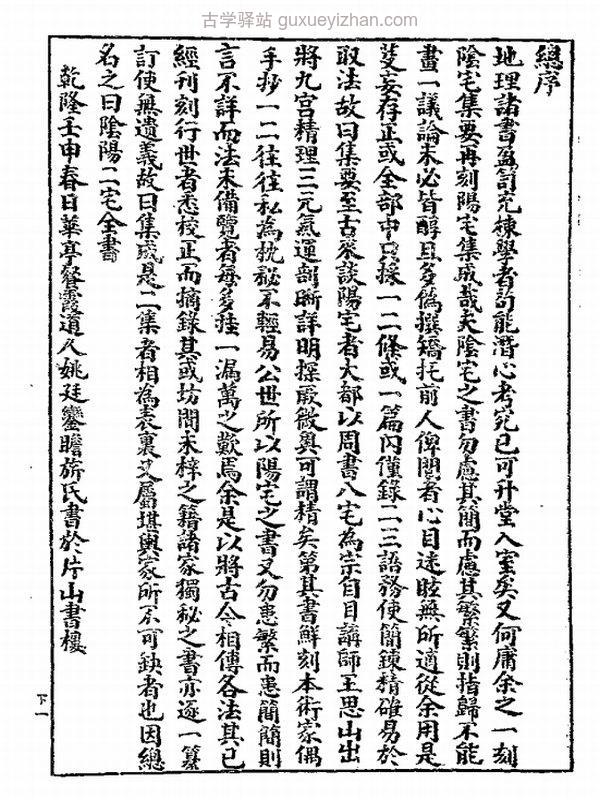 古学驿站 guxueyizhan.com
總序
地理諸書盈笥充棟學者苟能潛心考究已可升堂入室矣又何庸余之一刻
陰宅集要再刻陽宅集成哉夫陰宅之書勿慮其簡而慮其繁繁則指歸不能
畫一議論未必皆醇且多偽撰矯托前人俾閱者心目迷眩無所適從余用是
芟妄存正或全部中只採一二條或一篇內僅錄二三語務使簡鍊精確易於
取法故曰集要至古來談陽宅者大都以周書八宅為宗自目講師王思山出
將九宮精理三元氣運剖晰詳明探厥微奧可謂精矣第其書鮮刻本術家偶
手抄一二往往私為枕秘不輕易公世所以陽宅之書又勿患繁而患簡簡則
言不詳而法未備覽者每多挂一漏萬之歎焉余是以將古今相傳各法其已
經刊刻行世者悉校正而摘錄其或坊間未梓之籍諸家獨秘之書亦逐一纂
訂使無遺義故曰集成是二集者相為表裏又屬堪輿家所不可缺者也因總
名之曰陰陽二宅全書
乾隆壬申春日華亭餐霞道人姚廷鑾瞻旂氏書於片山書樓
下一